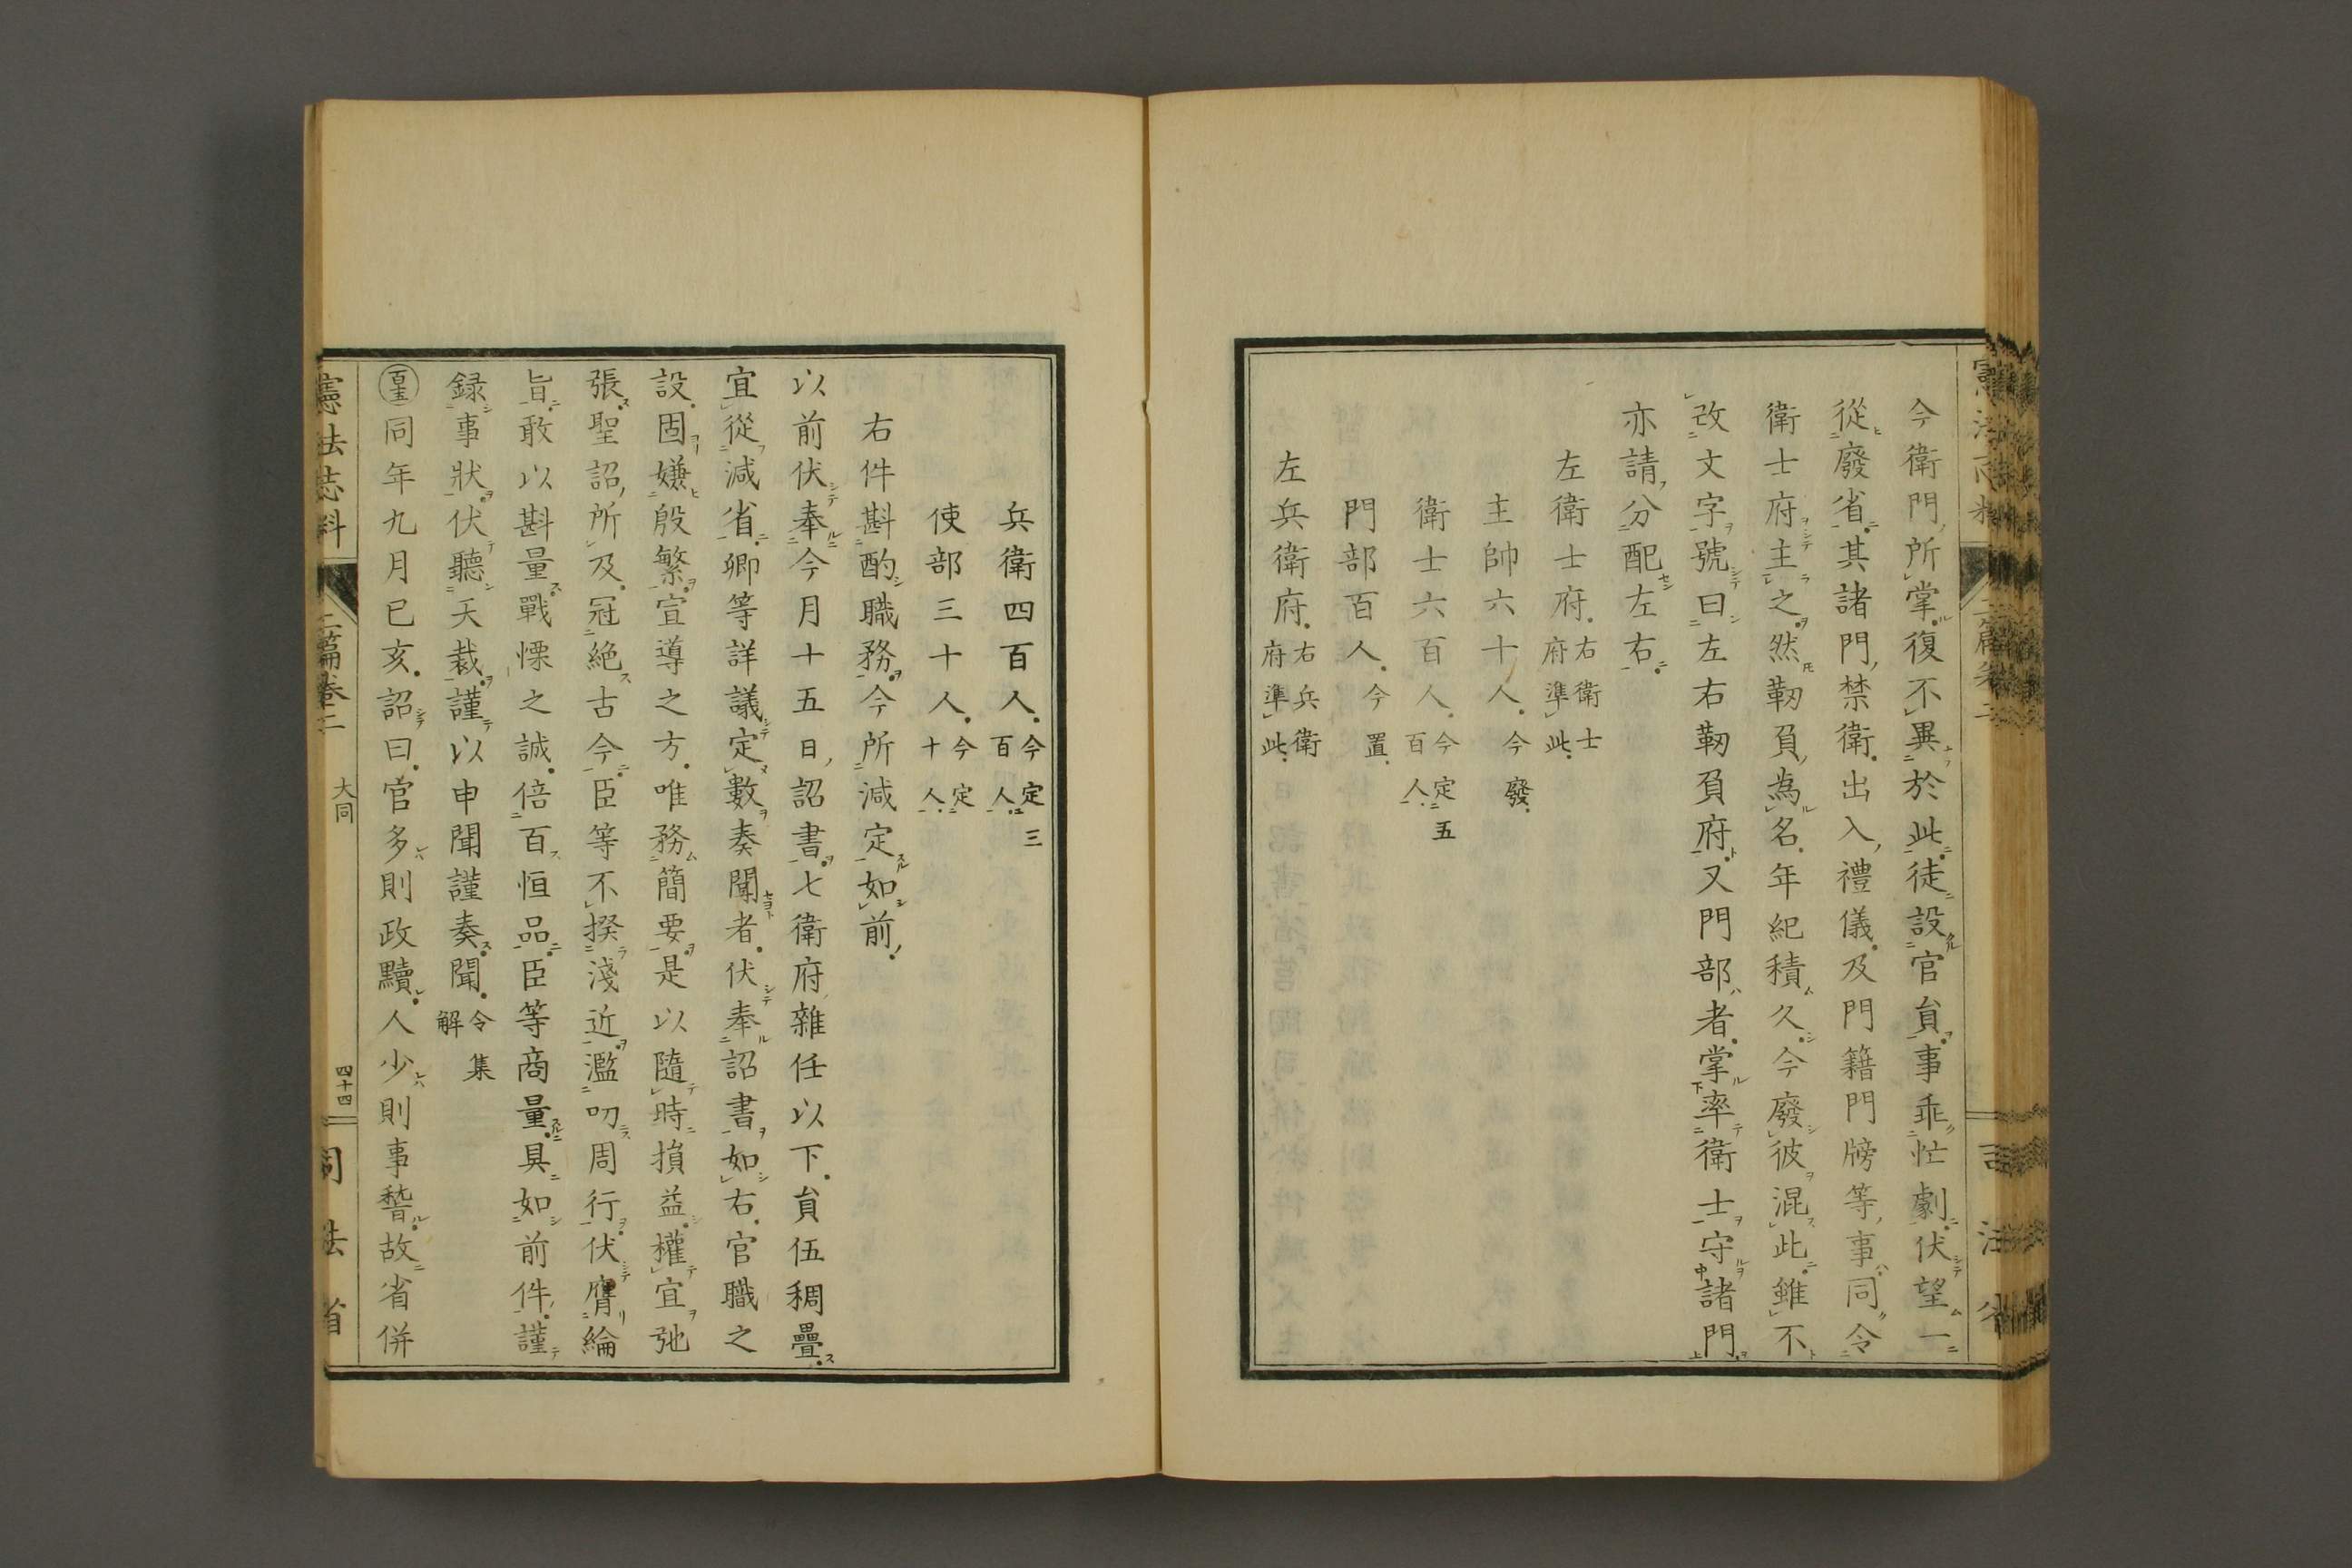 今衛門所掌復不異於此徒設官員事乖忙劇伏望一
從廢省其諸門禁衛出入禮儀及門籍門牓等事同令
衛士府主之然靱負為名年紀積久今廢彼混此雖不
改文字號曰左右靱負府又門部者掌率衛士守諸門
亦請分配左右
左衛士府 右衛士府準此
主帥六十人 今廢
衛士六百人 今定五百人
門部百人 今置
左兵衛府 右兵衛府準此
兵衛四百人 今定三百人
使部三十人 今定十人
右件斟酌職務今所減定如前
以前伏奉今月十五日詔書七衛府雜任以下員伍稠疊
宜從減省卿等詳議定數奏聞者伏奉詔書如右官職之
設固嫌殷繁宣導之方唯務簡要是以隨時損益權宜弛
張聖詔所及冠絶古今臣等不揆淺近濫叨周行伏膺綸
旨敢以斟量戰慄之誠倍百恒品臣等商量具如前件謹
録事狀伏聽天裁謹以申聞謹奏聞 令集解
同年九月已亥詔曰官多則政黷人少則事瞀故省併
憲法志料 二篇卷二 大同 四十四 司法省